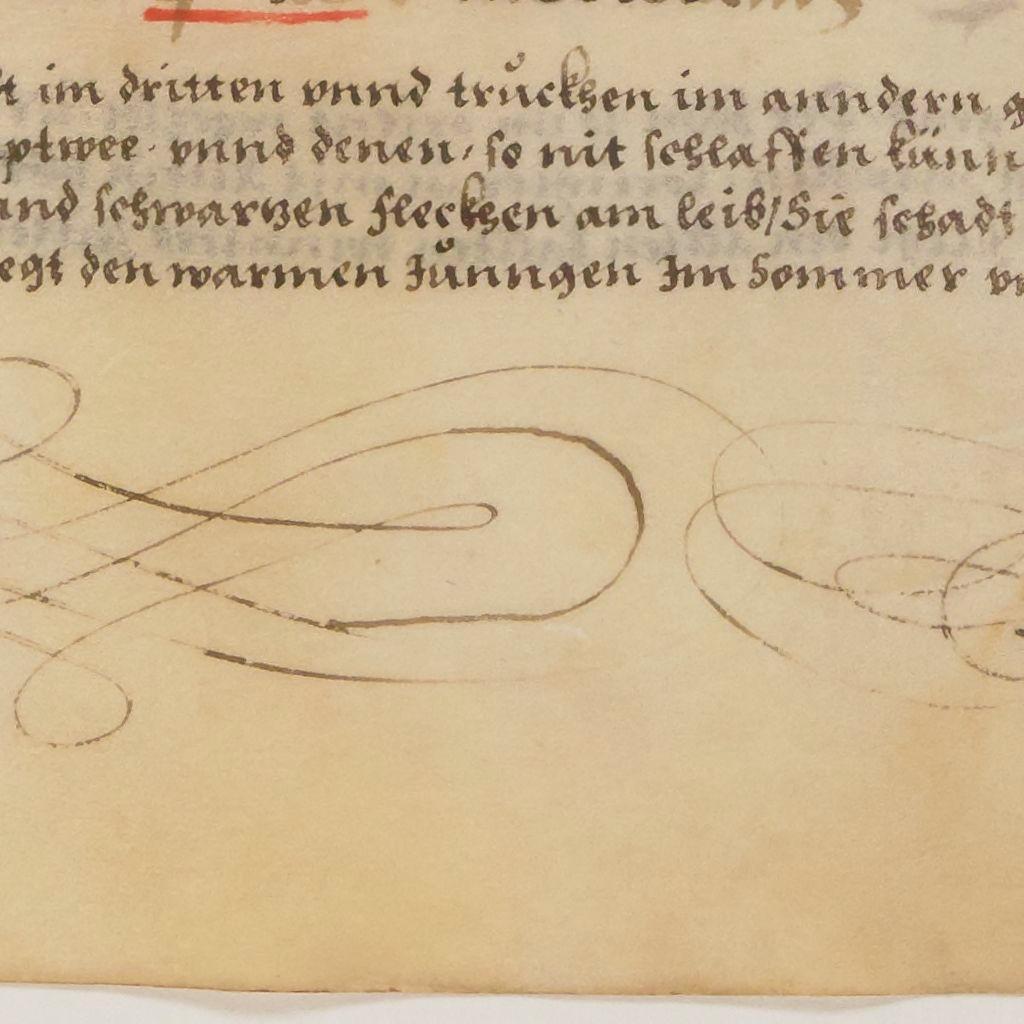 im dritten vnnd truͦckhen im anndern
ptwee · vnnd denen, so nit schlaffen künn
and schwartzen fleckhen am leib/Sie schadt
egt den warmen Juͦnngen Im Sommer